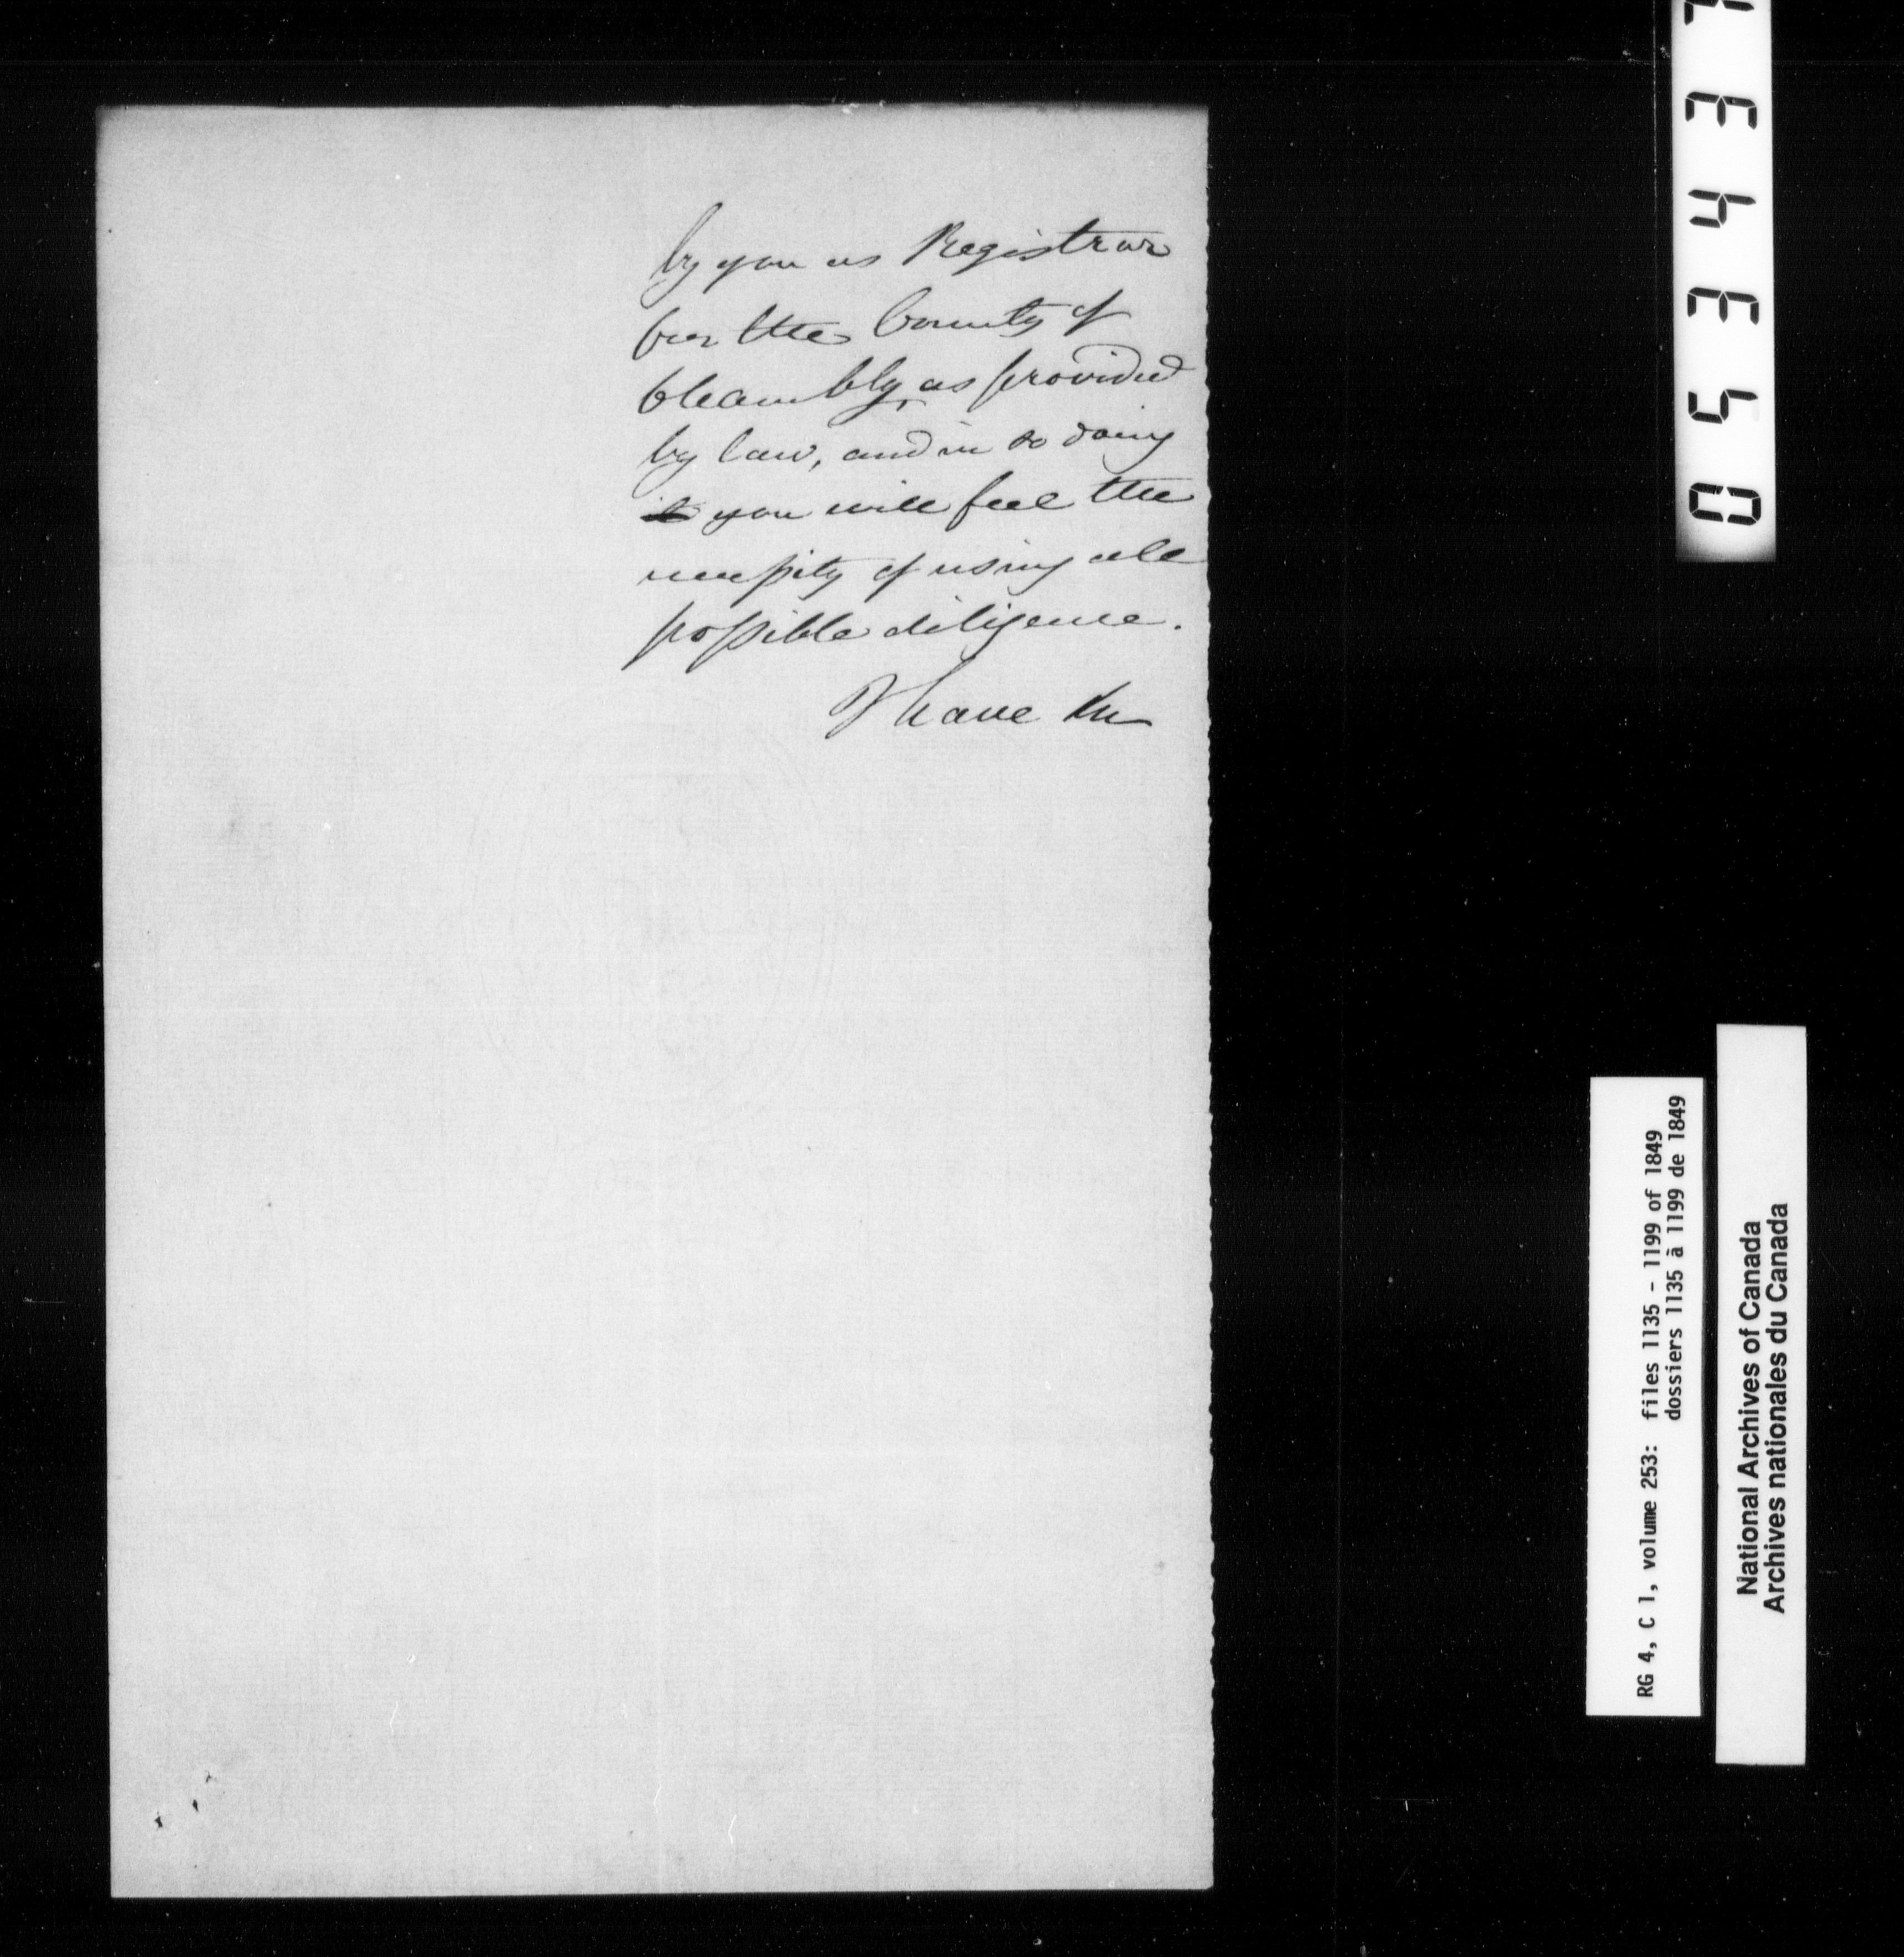 by you as Registrar
for the County of
Chambly, as provided
by law, and in so doing
you will feel the
necessity of using all
possible diligence.
I have the
05343
RG 4, C 1, volume 253: files 1135 - 1199 of 1849
dossiers 1135 à 1199 de 1849
National Archives of Canada
Archives nationales du Canada